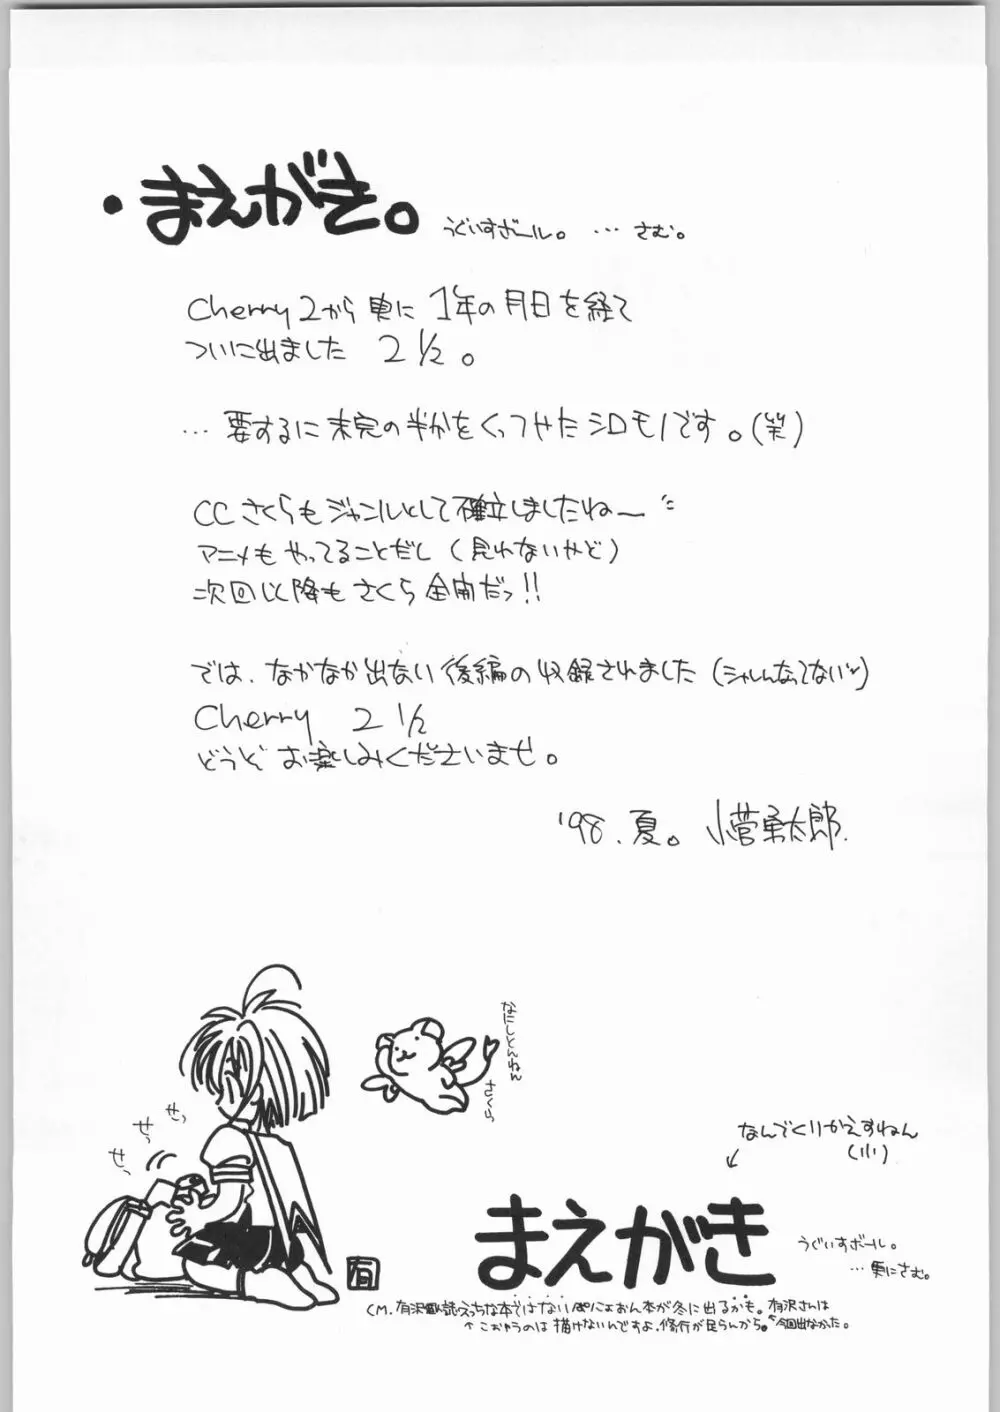 ・まえがき。
うぐいすボール。 … さむ。
Cherry 2から更に 1年の月日を経て
ついに出ました 2 1/2。
… 要するに未完の半分をくっつけたシロモノです。(笑)
CCさくらもジャンルとして確立しましたね〜
アニメもやってることだし (見れないけど)
次回以降もさくら全開だっ!!
では、なかなか出ない後編の収録されました (シャレんなってない)
Cherry 2 1/2
どうぞ お楽しみくださいませ。
'98.夏。 小菅勇太郎.
なにしとんねん
さくら
せっ
せっ
せっ
なんでくりかえすねん
(小)
まえがき
うぐいすボール。
… 更にさむ。
有
CM. 有沢個人誌えっちな本ではないにょおん本が冬に出るかも。有沢さんは
↑こおゆうのは描けないんですよ、修行が足らんから。今回出なかった。